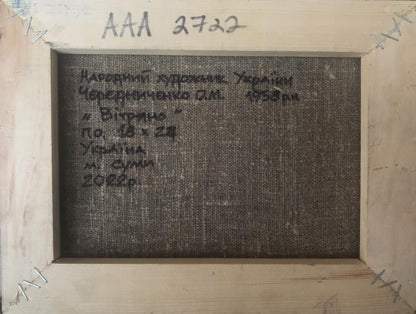 ААА 2722
Народний художник України
Чередниченко О.М. 1953р.н
„Вітряно"
п.о. 18 х 24
Україна
м. Суми
2022р